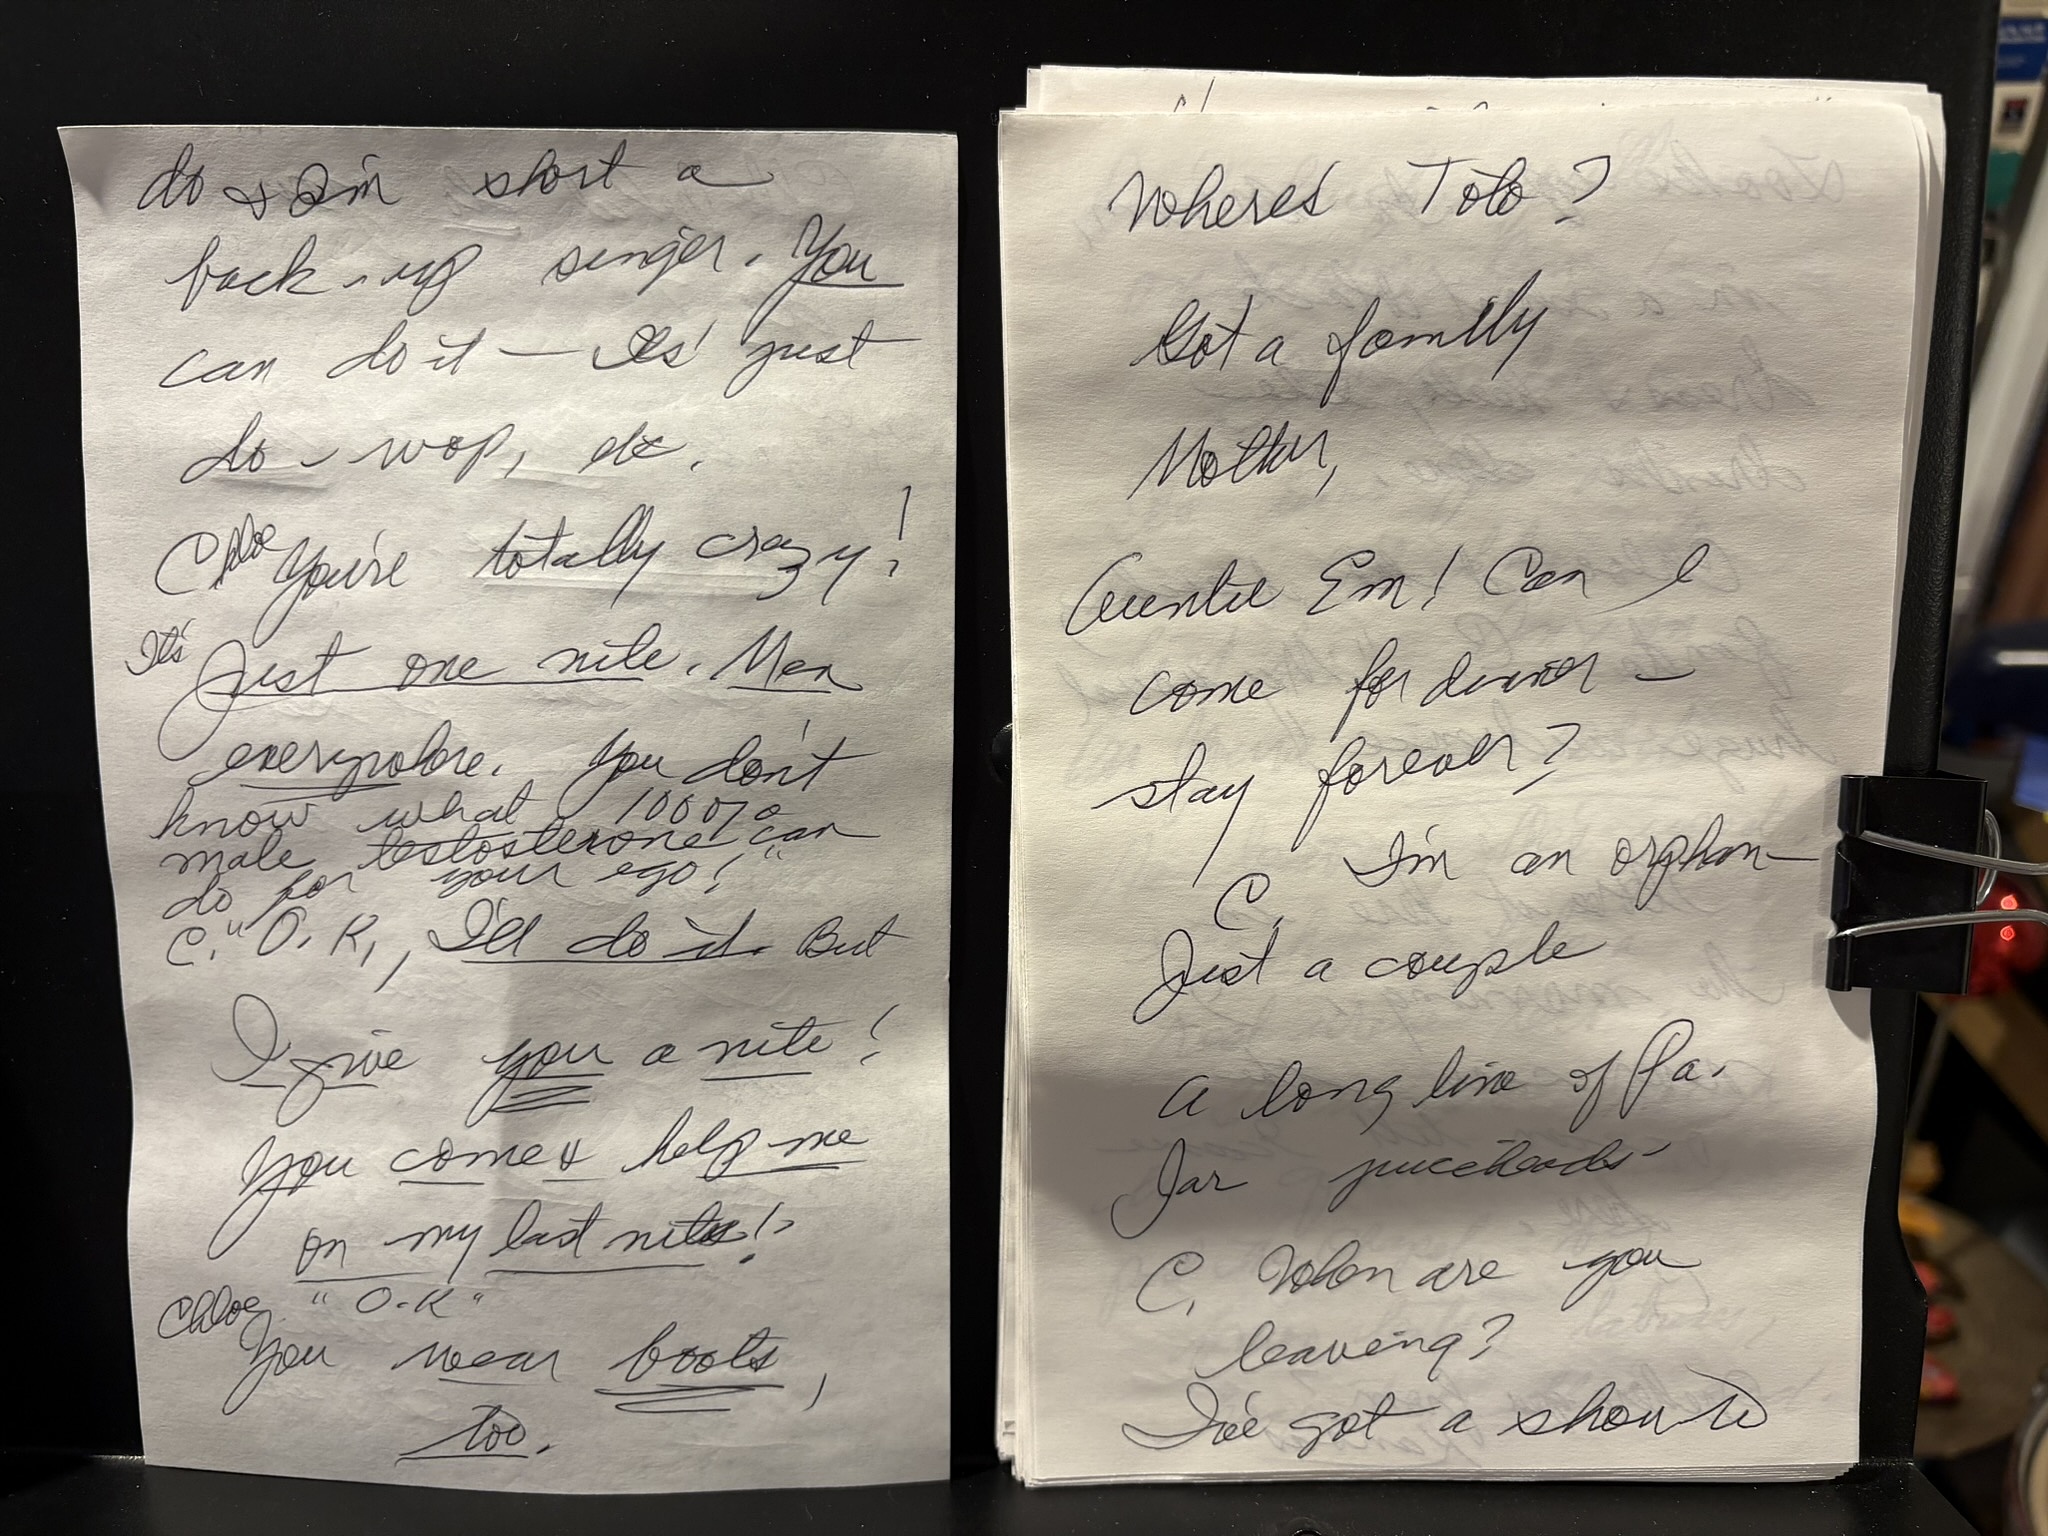 do & I'm short a
back-up singer. You
can do it — It's just
do-wop, etc.
Chloe You're totally crazy!
It's Just one nite. Men
everywhere. You don't
know what 100%
male testosterone can
do for your ego!"
C. "O.K., I'll do it. But
I give you a nite!
You come & help me
on my last nite!
"O.K"
Chloe You wear boots,
too.
Where's Toto?
Got a family
Mother,
Auntie Em! Can I
come for dinner —
stay forever?
I'm an orphan—
C.
Just a couple
A long line of Pa.
Jar juiceheads
C. When are you
leaving?
I've got a show to